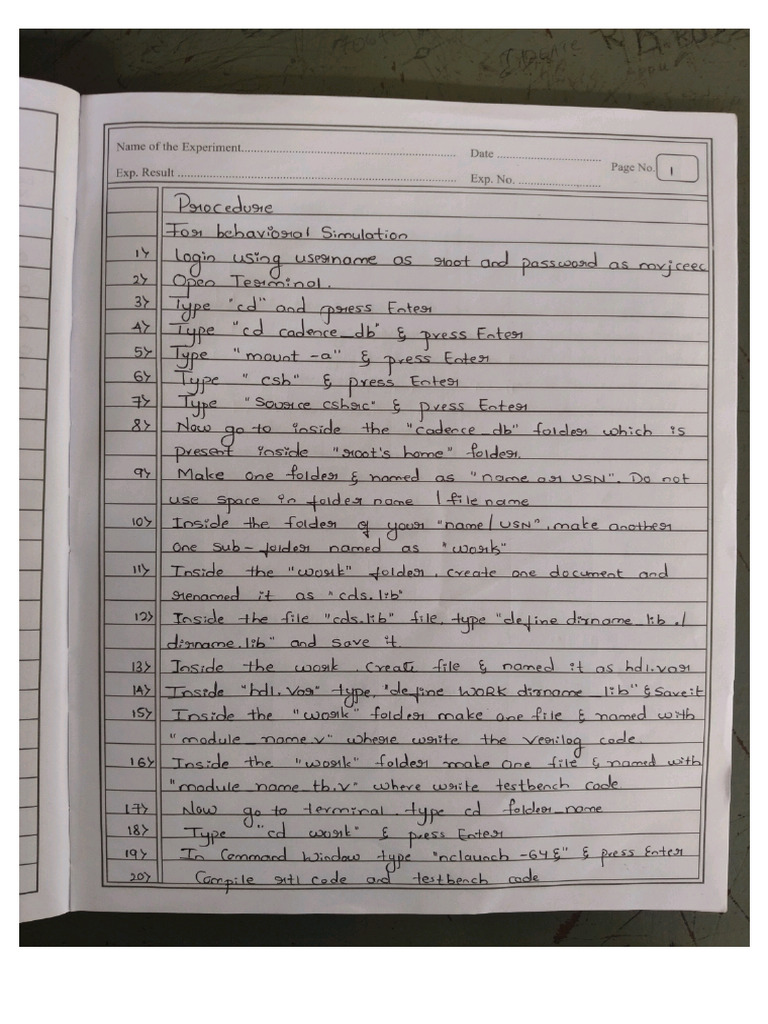 Name of the Experiment.......................................................... Date ............................
Page No. 1
Exp. Result ............................................................................ Exp. No. ......................
Procedure
For behavioral Simulation
1) Login using username as root and password as mvjceec
2) Open Terminal.
3) Type "cd" and press Enter
4) Type "cd cadence_db" & press Enter
5) Type "mount -a" & press Enter
6) Type "csh" & press Enter
7) Type "Source cshrc" & press Enter
8) Now go to inside the "cadence_db" folder which is
present inside "root's home" folder.
9) Make one folder & named as "name or USN". Do not
use space in folder name / file name
10) Inside the folder of your "name/USN", make another
one sub-folder named as "work"
11) Inside the "work" folder, create one document and
renamed it as "cds.lib"
12) Inside the file "cds.lib" file, type "define dirname_lib ./
dirname.lib" and save it.
13) Inside the work, create file & named it as hdl.var
14) Inside "hdl.var" type, "define WORK dirname_lib" & save it
15) Inside the "work" folder make one file & named with
"module_name.v" where write the verilog code.
16) Inside the "work" folder make one file & named with
"module_name_tb.v" where write testbench code.
17) Now go to terminal, type cd folder_name
18) Type "cd work" & press Enter
19) In Command Window type "nclaunch -64&" & press Enter
20) Compile rtl code and testbench code